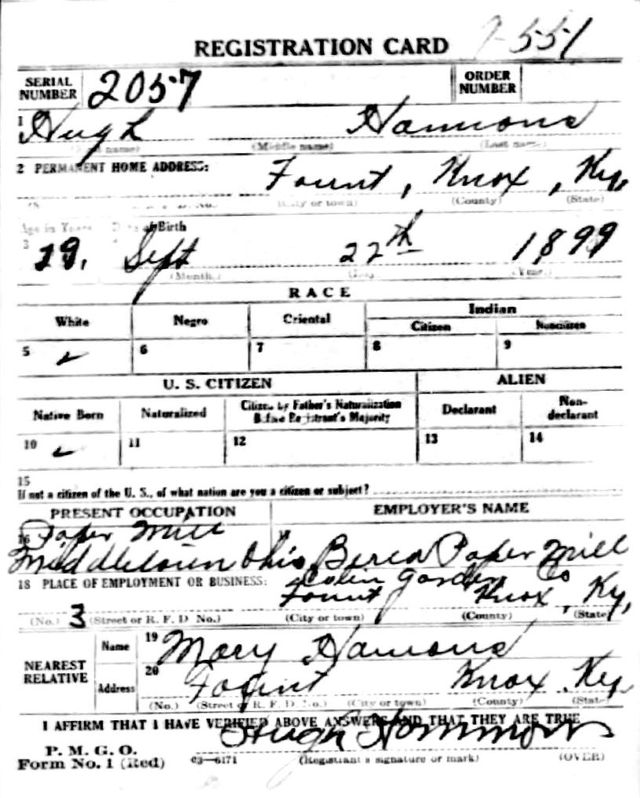 REGISTRATION CARD
551
SERIAL NUMBER 2057 ORDER NUMBER
1 Hugh Hamons
(First name) (Middle name) (Last name)
2 PERMANENT HOME ADDRESS: Fount, Knox, Ky.
(City or town) (County) (State)
Age in Years Date of Birth
3 19. Sept 22th 1899
(Month.) (Day.) (Year.)
RACE
White Negro Oriental Indian
Citizen Noncitizen
5 ✓ 6 7 8 9
U. S. CITIZEN ALIEN
Native Born Naturalized Citizen by Father's Naturalization Before Registrant's Majority Declarant Non-declarant
10 ✓ 11 12 13 14
15
If not a citizen of the U. S., of what nation are you a citizen or subject?
PRESENT OCCUPATION EMPLOYER'S NAME
16 Paper Mill 17
Middletown Ohio Paper Mill
18 PLACE OF EMPLOYMENT OR BUSINESS: Co
Fount Knox, Ky,
(No.) 3 (Street or R. F. D. No.) (City or town) (County) (State)
NEAREST RELATIVE
Name 19 Mary Hamons
Address 20 Fount Knox Ky
(No.) (Street or R. F. D. No.) (City or town) (County) (State)
I AFFIRM THAT I HAVE VERIFIED ABOVE ANSWERS AND THAT THEY ARE TRUE
Hugh Hammons
P. M. G. O.
Form No. 1 (Red) 03—6171 (Registrant's signature or mark) (OVER)